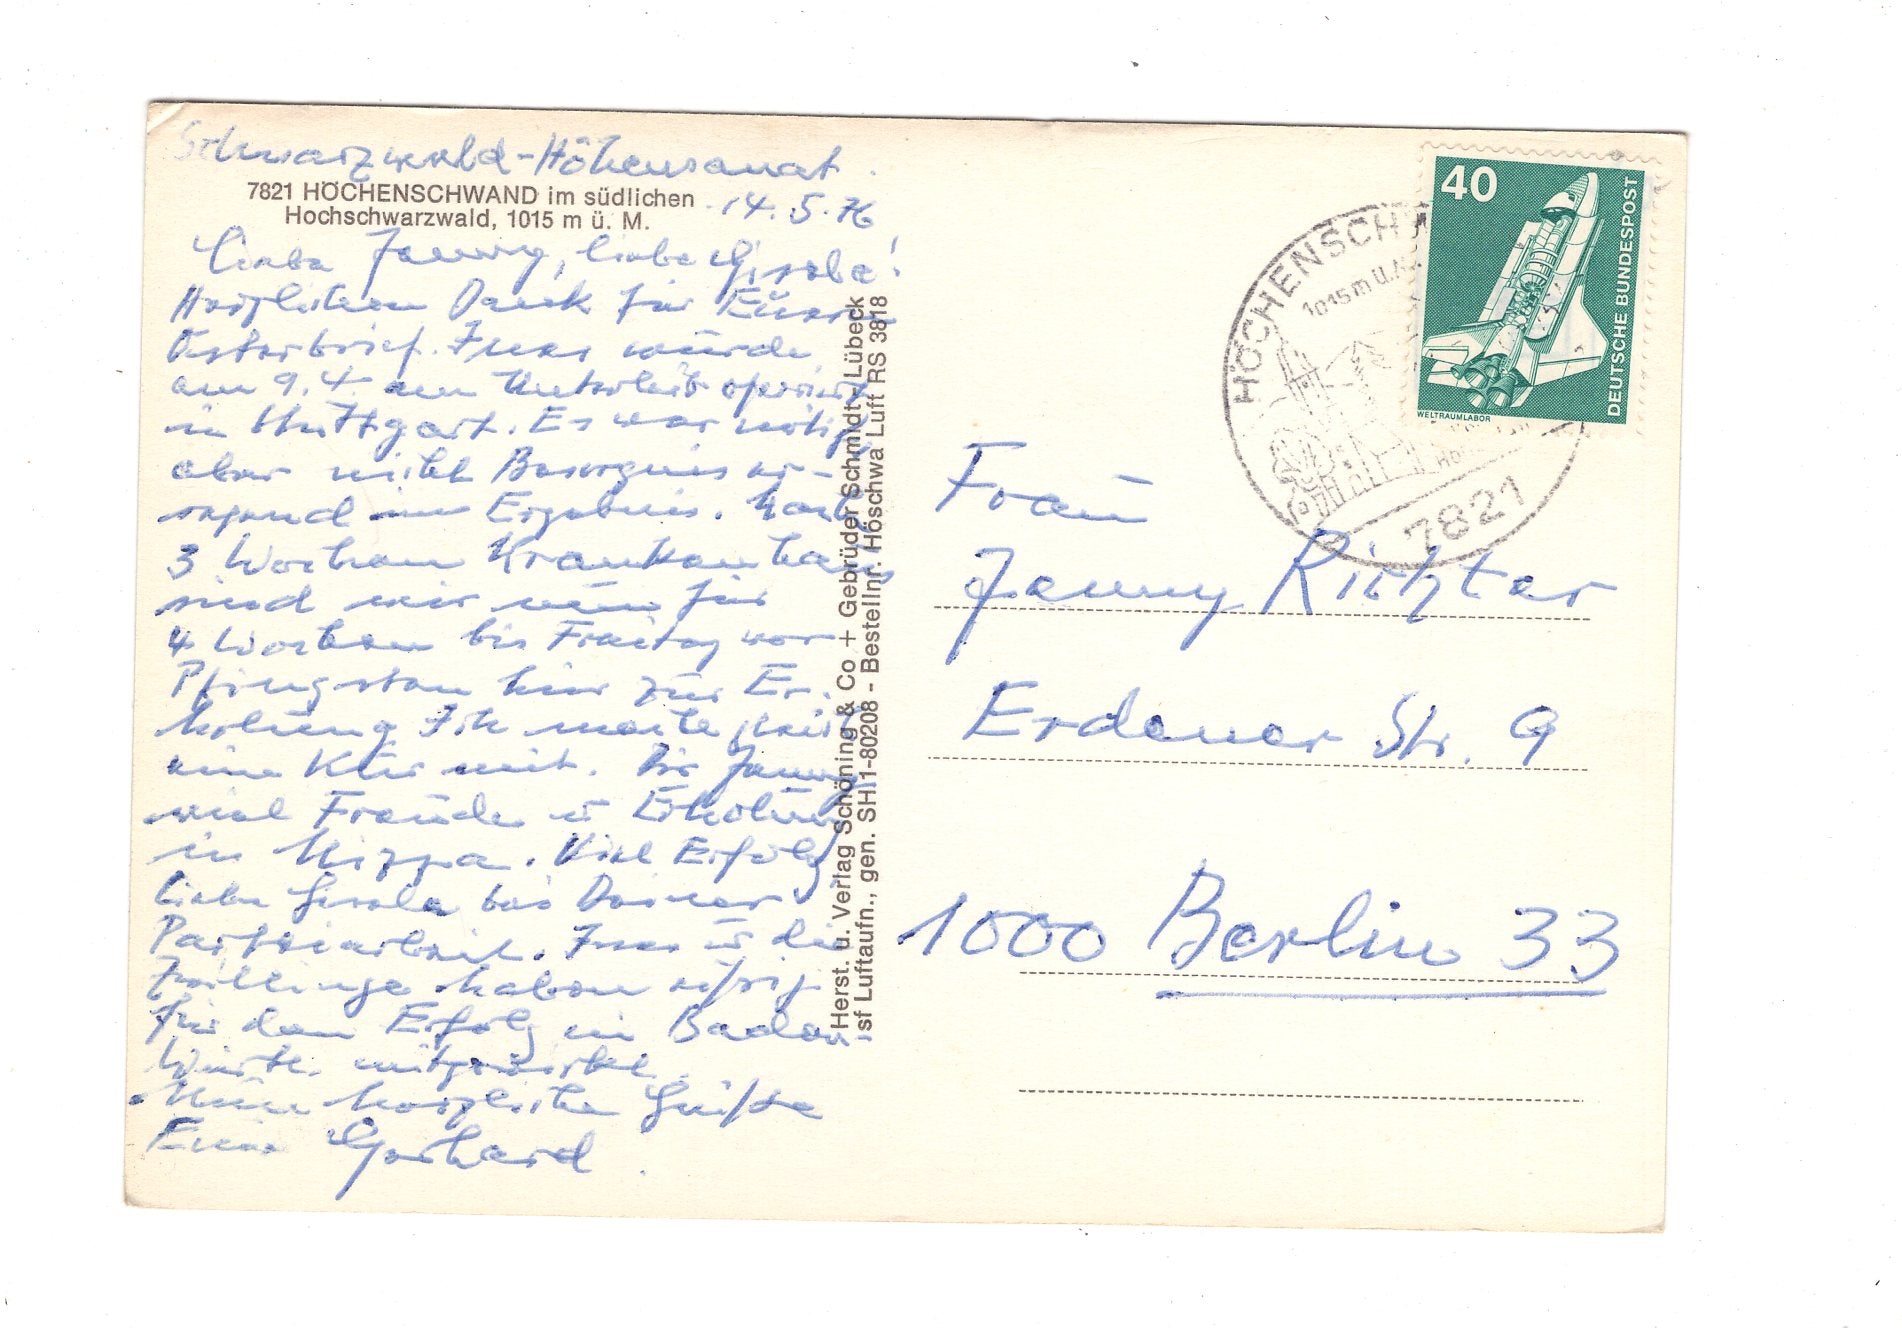 Schwarzwald-Höhensanat.
7821 HÖCHENSCHWAND im südlichen
Hochschwarzwald, 1015 m ü. M.
14.5.76
Liebe Jenny, liebe Gisela!
Herzlichen Dank für Euren
Osterbrief. Ines wurde
am 9.4 am Unterleib operiert
in Stuttgart. Es war nötig
aber nicht Besorgnis er-
regend im Ergebnis. Nach
3 Wochen Krankenhaus
sind wir nun für
4 Wochen bis Freitag vor
Pfingsten hier zur Er-
holung Ich mache
eine Kur mit. Dir Jenny
viel Freude u Erholung
in Nizza. Viel Erfolg
liebe Gisela bei Deiner
Parteiarbeit. Ines u die
Zwillinge haben eifrig
für den Erfolg in Baden-
Württ. mitgewirkt.
herzliche Grüße
Euer Gerhard.
Herst. u. Verlag Schöning & Co + Gebrüder Schmidt, Lübeck
sf Luftaufn., gen. SH1-80208 - Bestellnr. Höschwa Luft RS 3818
HÖCHENSCH
1015 m ü.
7821
40
DEUTSCHE BUNDESPOST
WELTRAUMLABOR
Frau
Jenny Richter
Erdener Str. 9
1000 Berlin 33